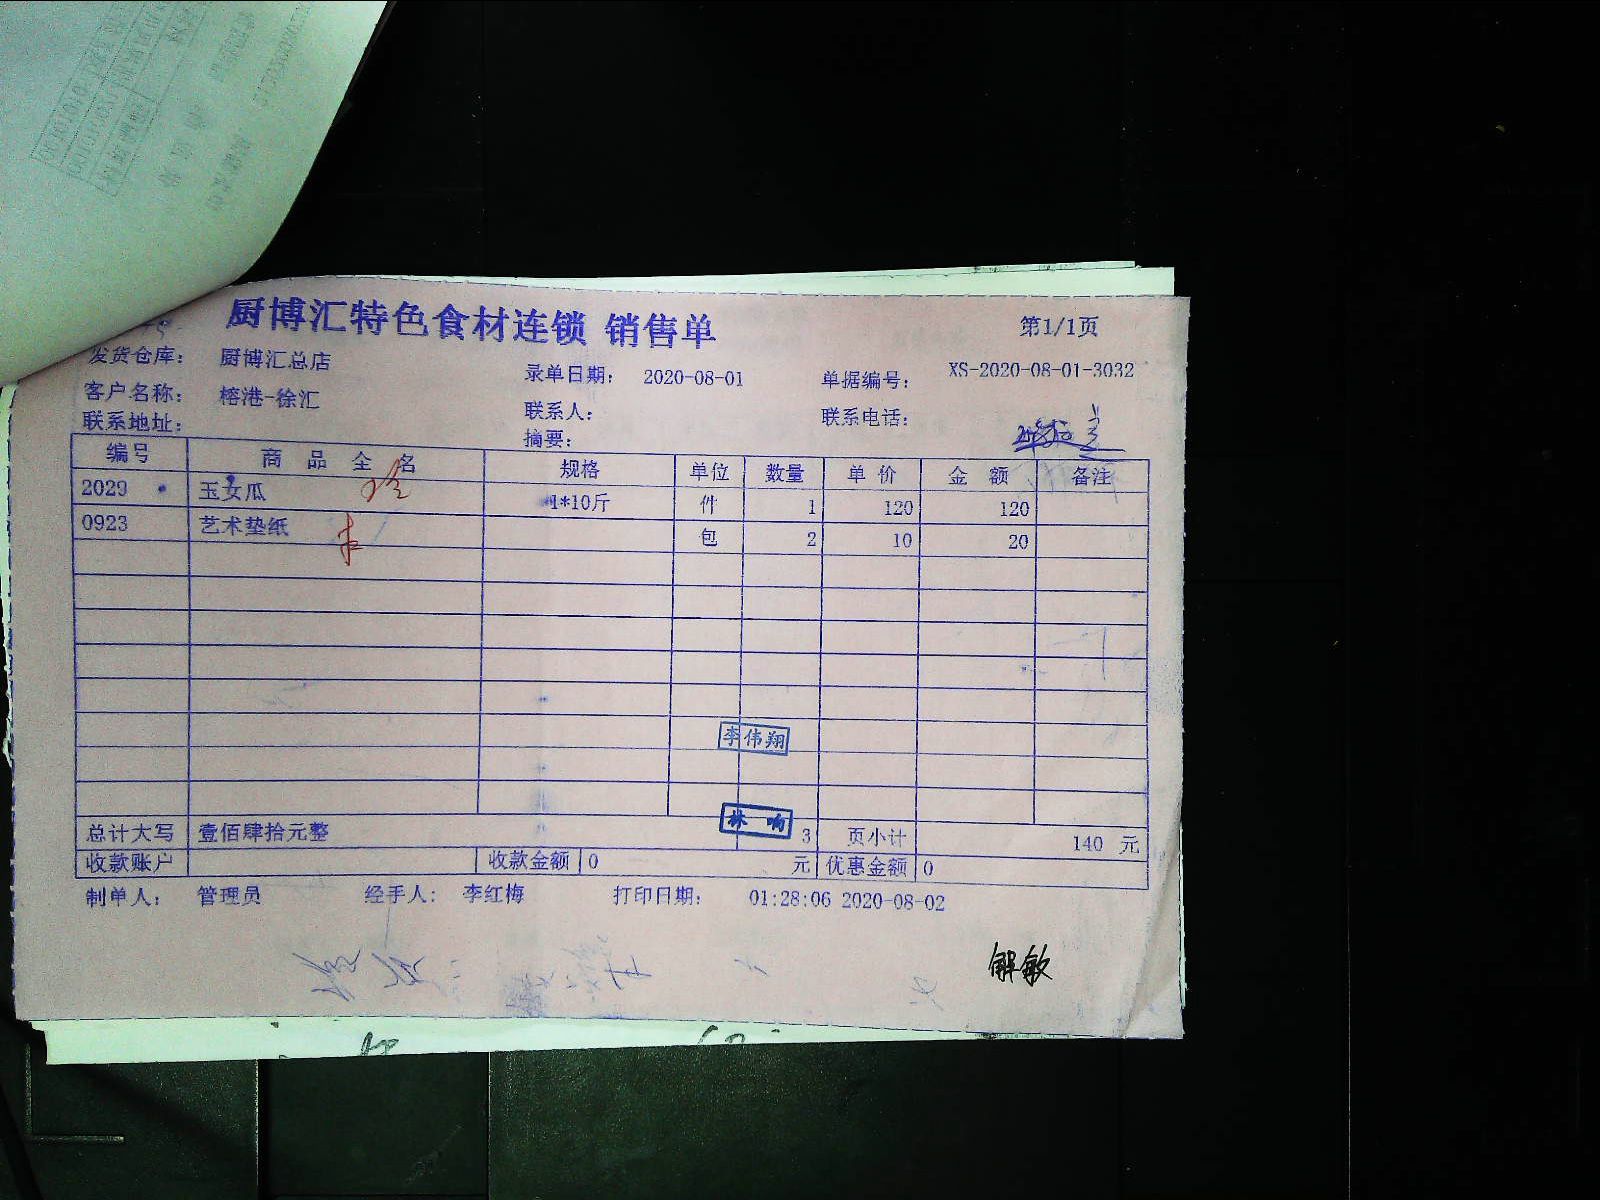 厨博汇特色食材连锁 销售单
第1/1页
发货仓库： 厨博汇总店
录单日期： 2020-08-01
单据编号： XS-2020-08-01-3032
客户名称： 榕港-徐汇
联系人：
联系电话：
联系地址：
摘要：
编号 商品全名 规格 单位 数量 单价 金额 备注
2029 玉女瓜 1*10斤 件 1 120 120
0923 艺术垫纸 包 2 10 20
李伟翔
林响
总计大写 壹佰肆拾元整 3 页小计 140 元
收款账户 收款金额 0 元 优惠金额 0
制单人： 管理员 经手人： 李红梅 打印日期： 01:28:06 2020-08-02
解敏